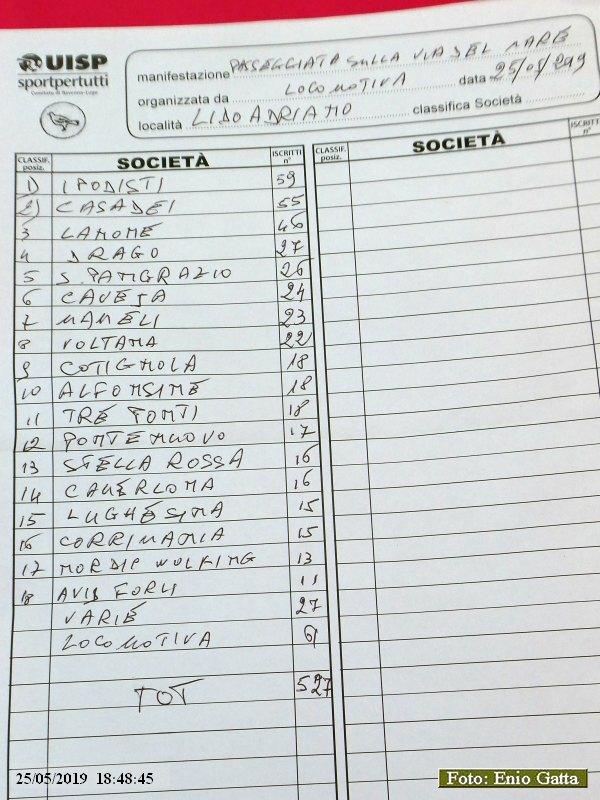 UISP
sportpertutti
Comitato di Ravenna-Lugo
manifestazione PASEGGIATA SULLA VIA DEL MARE
organizzata da LOCOMOTIVA data 25/05/2019
località LIDO ADRIANO classifica Società
CLASSIF. posiz. SOCIETÀ ISCRITTI n°
1) I PODISTI 59
2) CASADEI 55
3 LAMONE 46
4 DRAGO 27
5 S. PANGRAZIO 26
6 CAVEJA 24
7 MAMELI 23
8 VOLTANA 22
9 COTIGNOLA 18
10 ALFONSINE 18
11 TRE PONTI 18
12 PONTENUOVO 17
13 STELLA ROSSA 16
14 CAVERLONA 16
15 LUGHESINA 15
16 CORRIMANIA 15
17 NORDIP WOLKING 13
18 AVIS FORLI 11
VARIE 27
LOCOMOTIVA 61
TOT 527
CLASSIF. posiz. SOCIETÀ ISCRITTI n°
25/05/2019 18:48:45
Foto: Enio Gatta